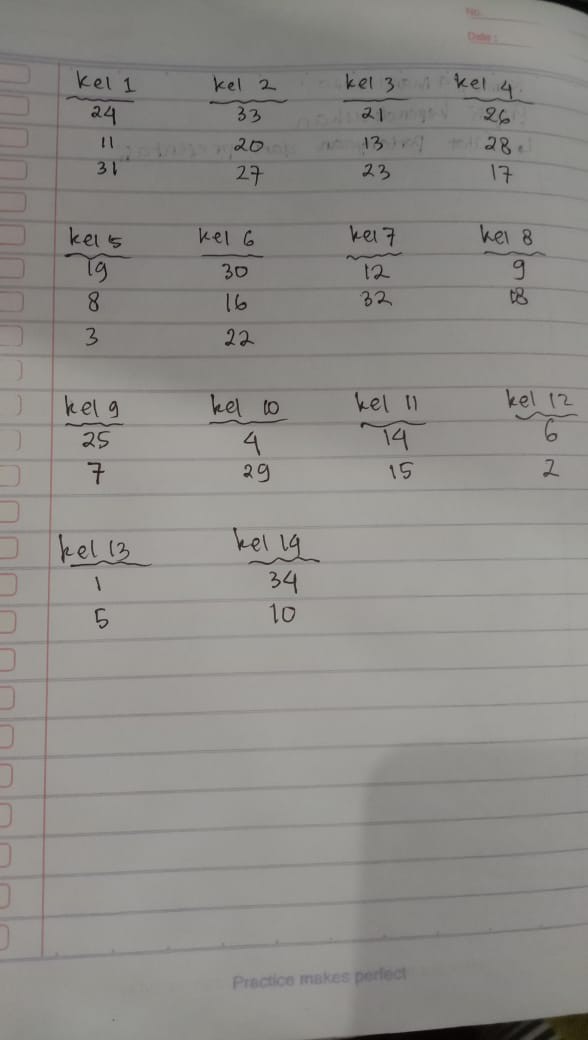 No.
Date :
kel 1 kel 2 kel 3 kel 4
24 33 21 26
11 20 13 28
31 27 23 17
kel 5 kel 6 kel 7 kel 8
19 30 12 9
8 16 32 18
3 22
kel 9 kel 10 kel 11 kel 12
25 4 14 6
7 29 15 2
kel 13 kel 14
1 34
5 10
Practice makes perfect